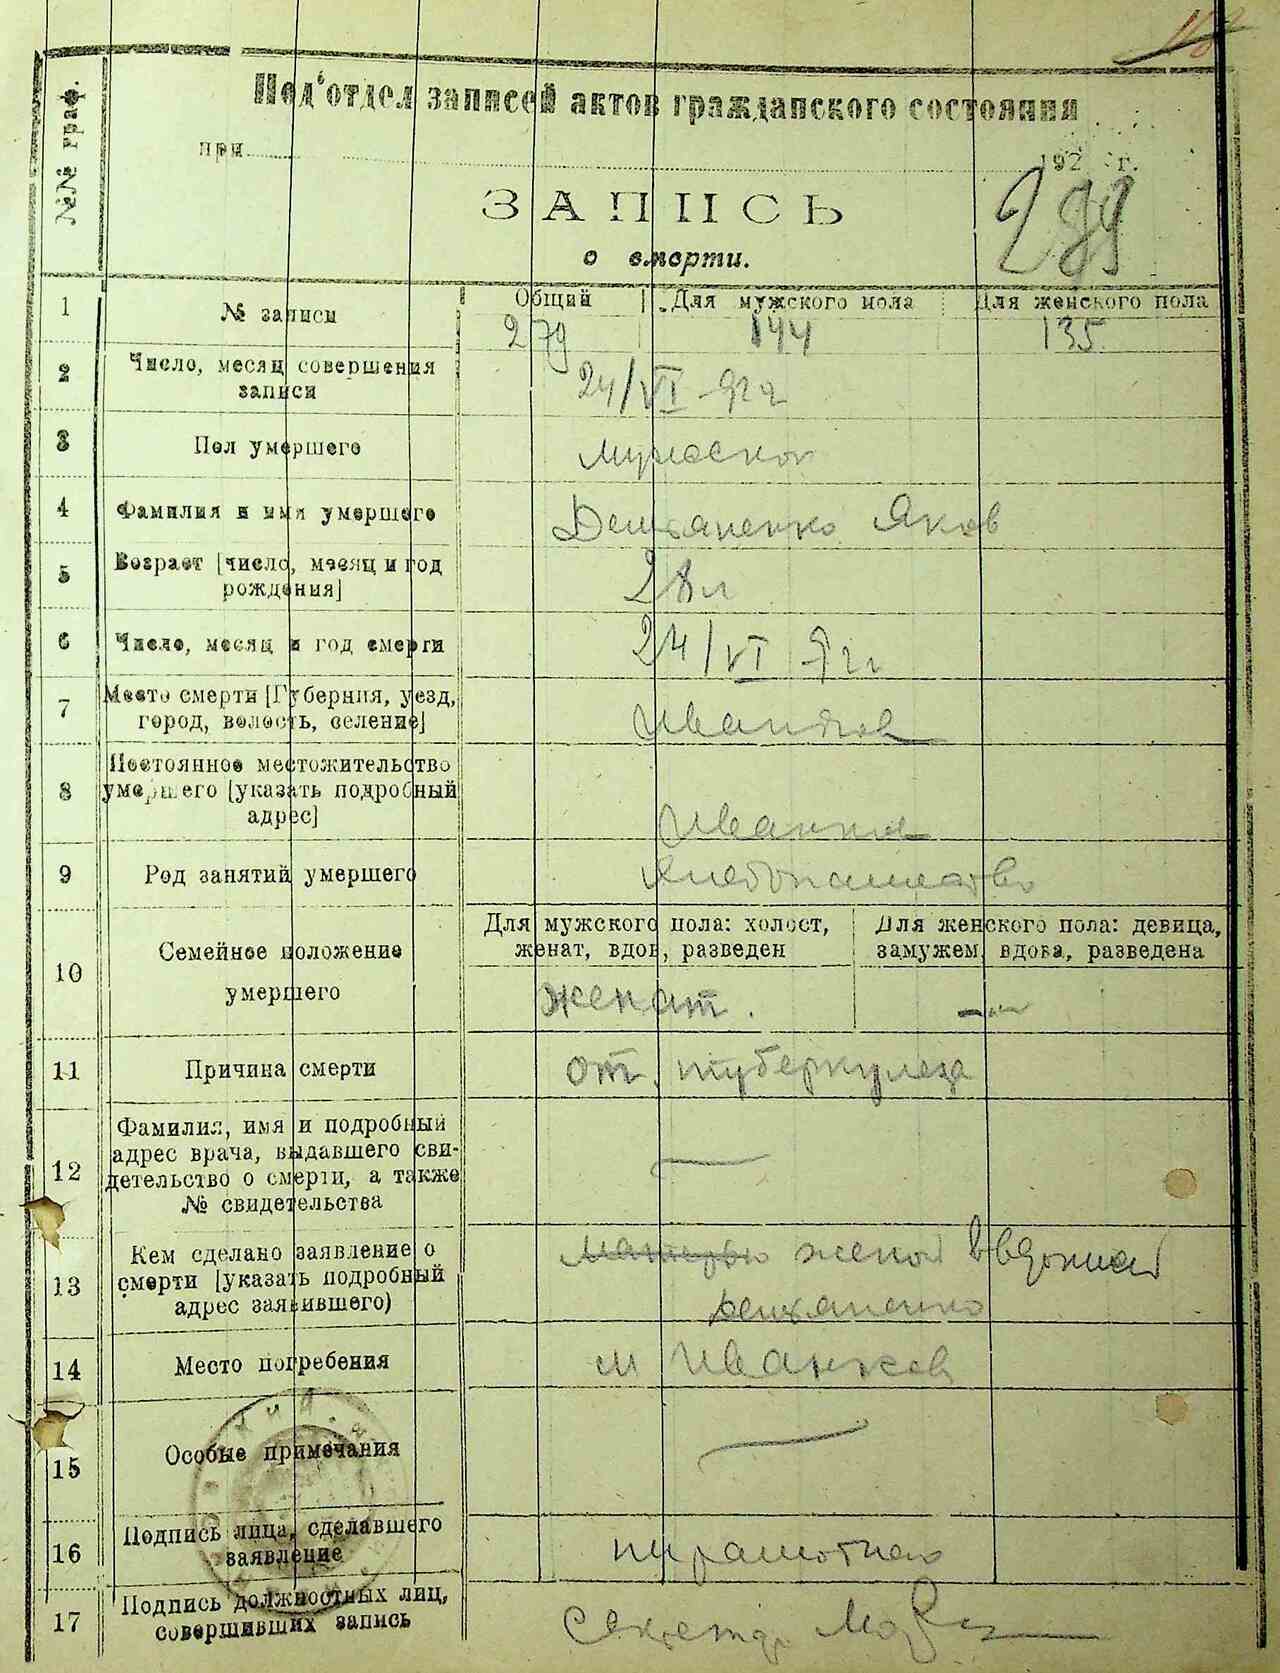 №№ граф.
Под'отдел записей актов гражданского состояния
при 192 г.
ЗАПИСЬ
289
о смерти.
1 № записи Общий Для мужского пола Для женского пола
279 144 135
2 Число, месяц совершения
записи 24/VI
3 Пол умершего
4 Фамилия и имя умершего Яков
5 Возраст [число, месяц и год
рождения] 28 л
6 Число, месяц и год смерти 24/VI
7 Место смерти [Губерния, уезд,
город, волость, селение] Иванков
8 Постоянное местожительство
умершего [указать подробный
адрес]
9 Род занятий умершего хлебопашество
10 Семейное положение
умершего
Для мужского пола: холост,
женат, вдов, разведен
Для женского пола: девица,
замужем, вдова, разведена
женат.
11 Причина смерти от туберкулеза
12 Фамилия, имя и подробный
адрес врача, выдавшего сви-
детельство о смерти, а также
№ свидетельства
13 Кем сделано заявление о
смерти [указать подробный
адрес заявившего)
матерью женой
14 Место погребения м Иванков
15 Особые примечания
16 Подпись лица, сделавшего
заявление
17 Подпись должностных лиц,
совершивших запись